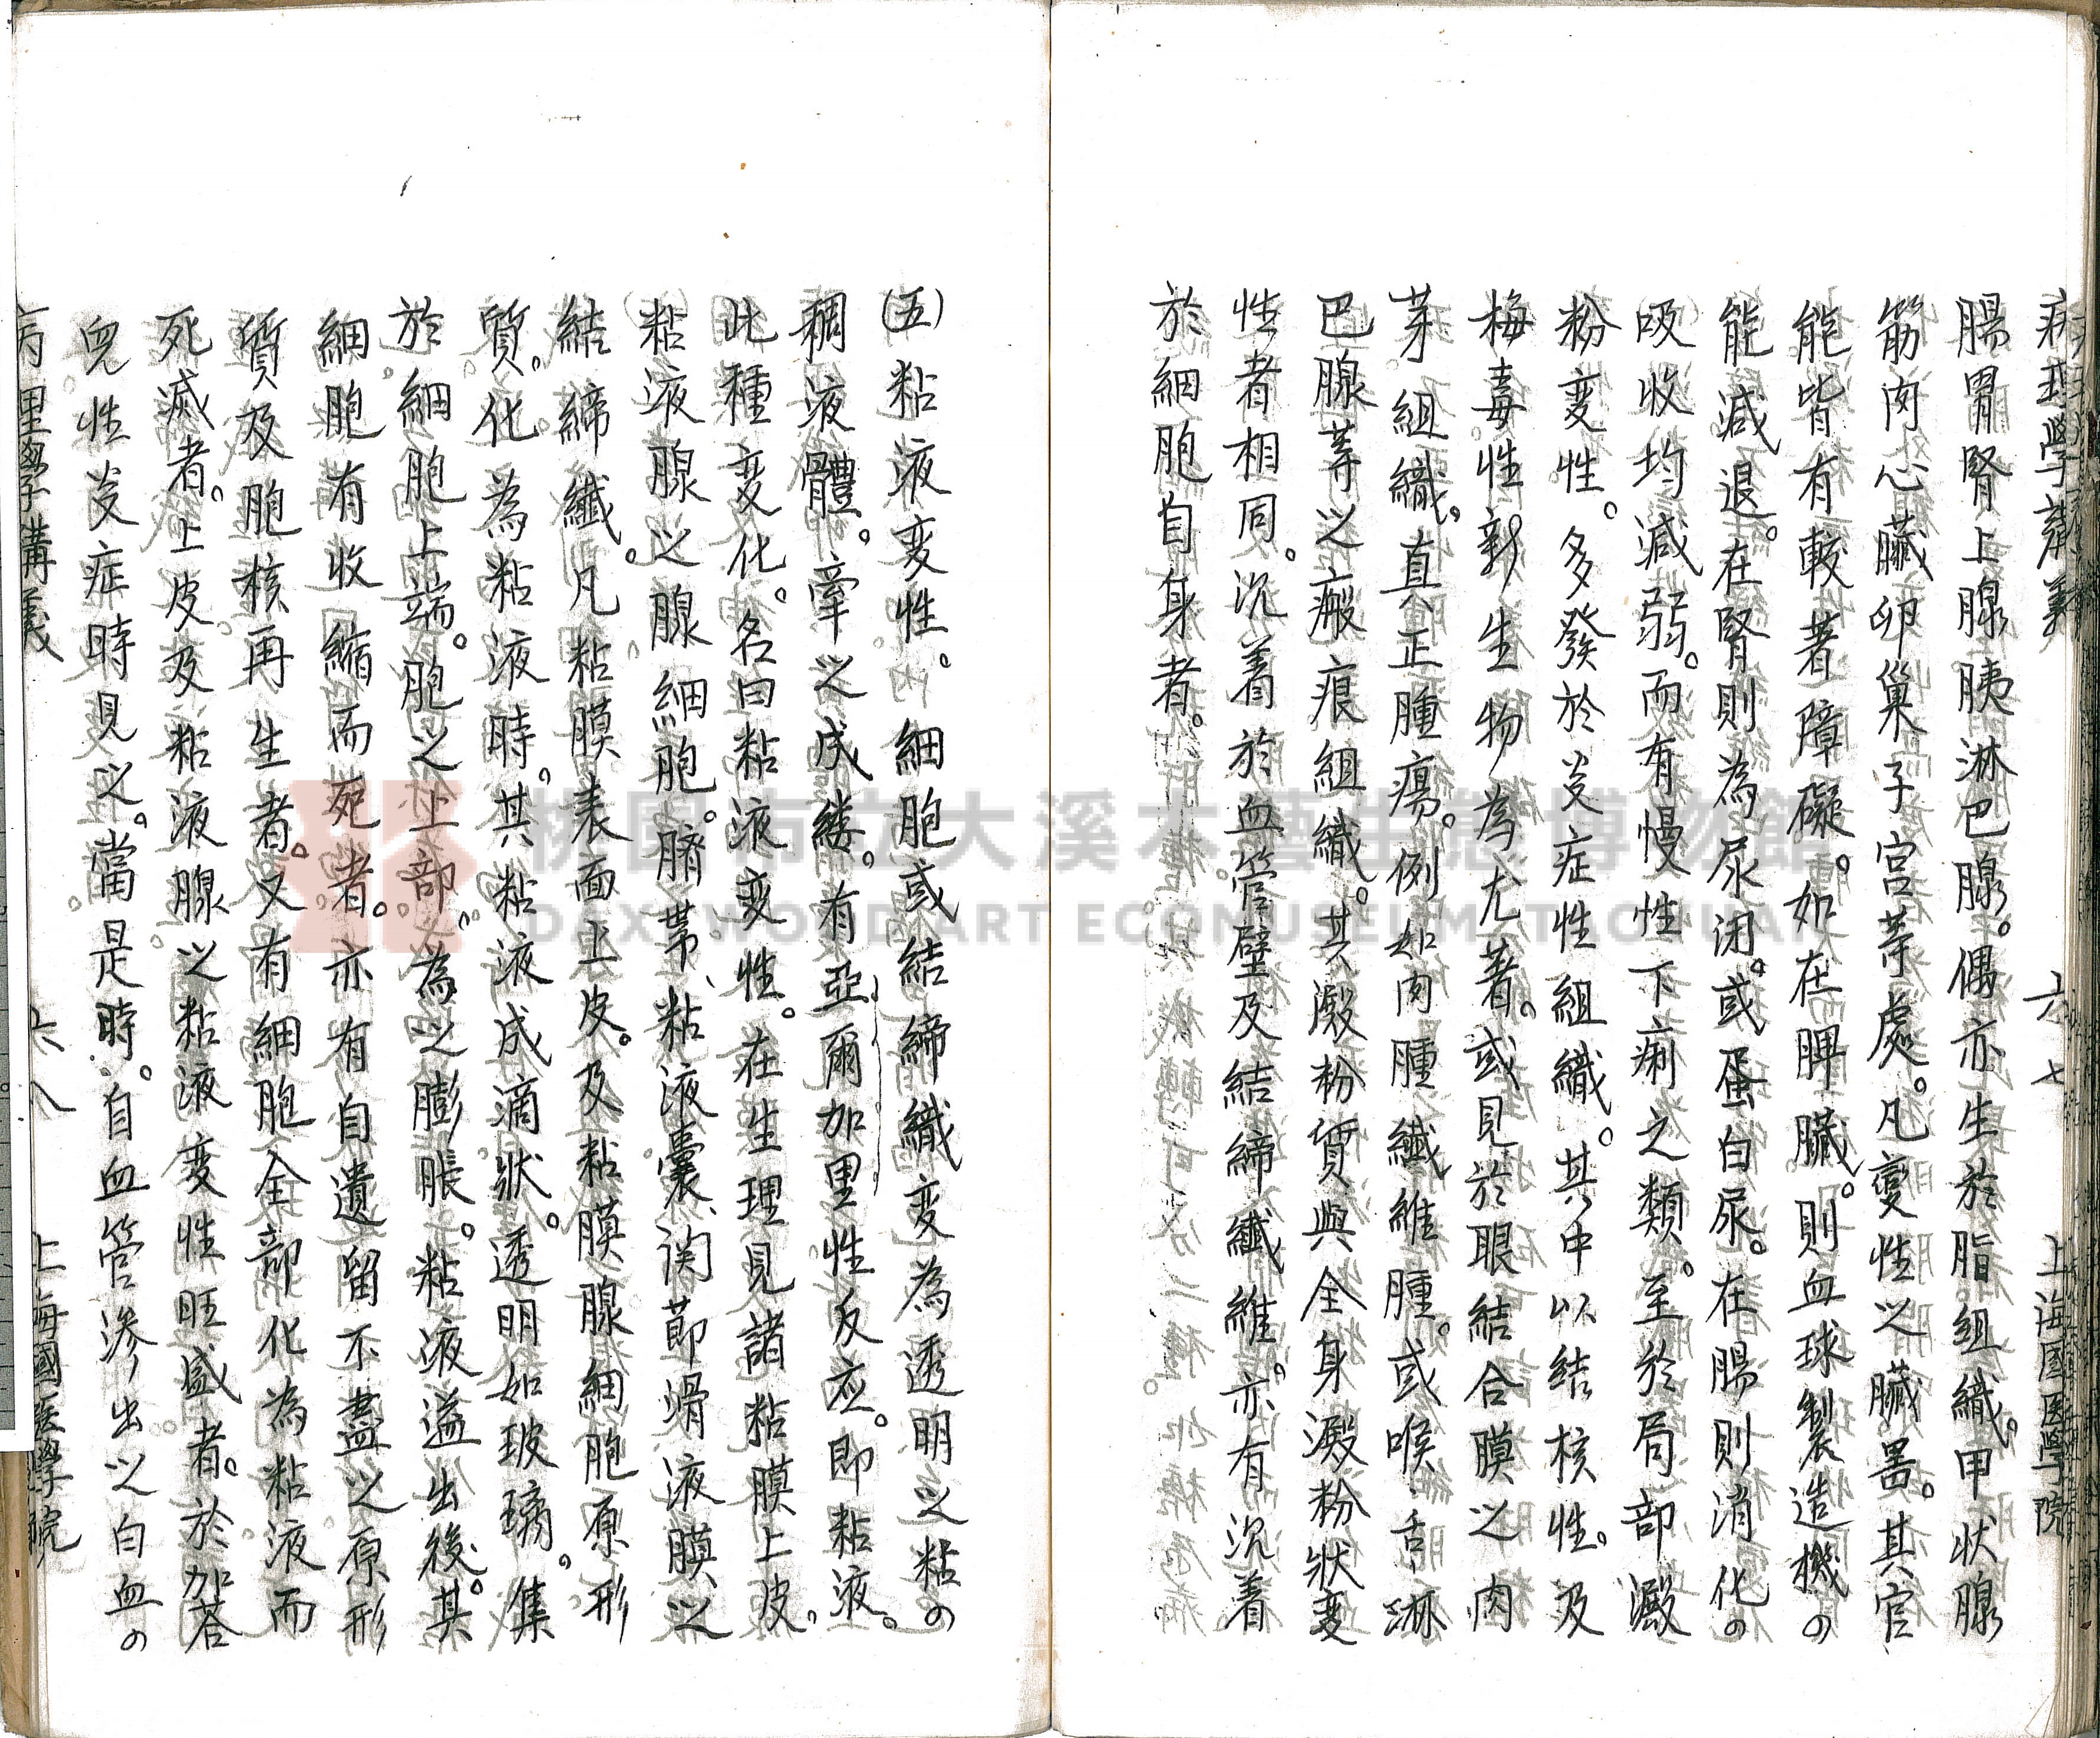 病理學講義 六七 上海國医學院
腸胃腎上腺胰淋巴腺。偶亦生於脂組織。甲狀腺
筋肉心臟卵巢子宮等處。凡變性之臟器。其官
能皆有較著障礙。如在脾臟。則血球製造機の
能減退。在腎則為尿闭。或蛋白尿。在腸則消化の
吸收均減弱。而有慢性下痢之類。至於局部澱
粉変性。多發於炎症性組織。其中以結核性。及
梅毒性新生物為尤著。或見於眼結合膜之肉
芽組織。真正腫瘍。例如肉腫纖維腫。或喉舌淋
巴腺等之瘢痕組織。其澱粉質與全身澱粉狀变
性者相同。沉着於血管壁及結締纖維。亦有沉着
於細胞自身者。
(五)粘液変性。細胞或結締織変為透明之粘の
稠液體。牽之成縷。有亞爾加里性反应。即粘液。
此種変化。名曰粘液変性。在生理見諸粘膜上皮。
粘液腺之腺細胞。臍帯、粘液囊、関節滑液膜之
結締纖。凡粘膜表面上皮。及粘膜腺細胞原形
質。化為粘液時。其粘液成滴狀。透明如玻璃。集
於細胞上端。胞之上部。為之膨脹。粘液溢出後。其
細胞有收縮而死者。亦有自遺留不盡之原形
質及胞核再生者。又有細胞全部化為粘液而
死滅者。上皮及粘液腺之粘液変性旺盛者。於加荅
兒性炎症時見之。當是時。自血管滲出之白血の
病理學講義 六八 上海國医學院
桃園市立大溪木藝生態博物館
DAXI WOOD ART ECOMUSEUM, TAOYUAN